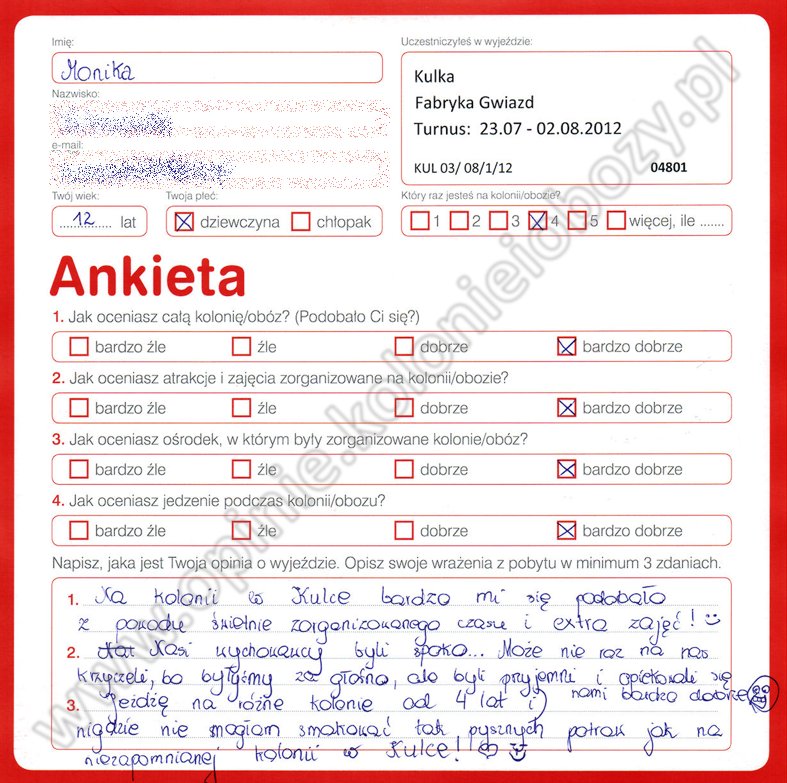 Imię:
Monika
Nazwisko:
e-mail:
Twój wiek:
12 lat
Twoja płeć:
dziewczyna chłopak
Uczestniczyłeś w wyjeździe:
Kulka
Fabryka Gwiazd
Turnus: 23.07 - 02.08.2012
KUL 03/ 08/1/12 04801
Który raz jesteś na kolonii/obozie?
1 2 3 4 5 więcej, ile .......
Ankieta
1. Jak oceniasz całą kolonię/obóz? (Podobało Ci się?)
bardzo źle źle dobrze bardzo dobrze
2. Jak oceniasz atrakcje i zajęcia zorganizowane na kolonii/obozie?
bardzo źle źle dobrze bardzo dobrze
3. Jak oceniasz ośrodek, w którym były zorganizowane kolonie/obóz?
bardzo źle źle dobrze bardzo dobrze
4. Jak oceniasz jedzenie podczas kolonii/obozu?
bardzo źle źle dobrze bardzo dobrze
Napisz, jaka jest Twoja opinia o wyjeździe. Opisz swoje wrażenia z pobytu w minimum 3 zdaniach.
1. Na kolonii w Kulce bardzo mi się podobało
z powodu świetnie zorganizowanego czasu i extra zajęć!
2. Nasi wychowawcy byli spoko... Może nie raz na nas
krzyczeli, bo byłyśmy za głośno, ale byli przyjemni i opiekowali się
nami bardzo dobrze
3. Jeżdżę na różne kolonie od 4 lat i
nigdzie nie mogłam smakować tak pysznych potraw jak na
niezapomnianej kolonii w Kulce!
www.opinie.kolonieiobozy.pl